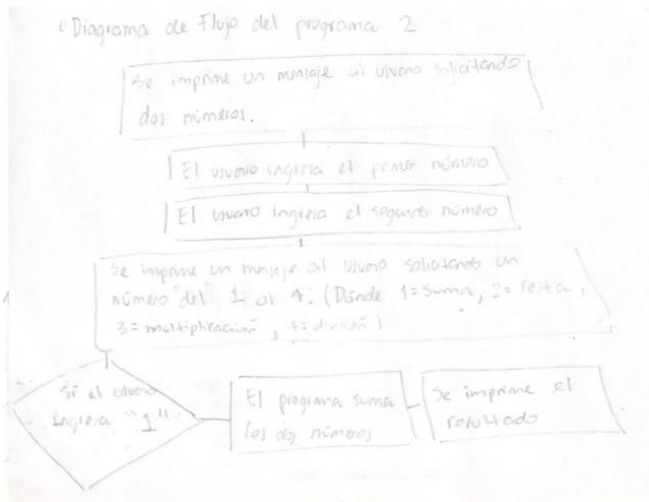 Diagrama de Flujo del programa 2
Se imprime un mensaje al usuario solicitando
dos números.
El usuario ingresa el primer número
El usuario ingresa el segundo número
Se imprime un mensaje al usuario solicitando un
número "del" 1 al 4: (Dónde 1=suma, 2=resta,
3=multiplicación, 4=división)
Si el usuario
ingresa "1"
El programa suma
los dos números
Se imprime el
resultado